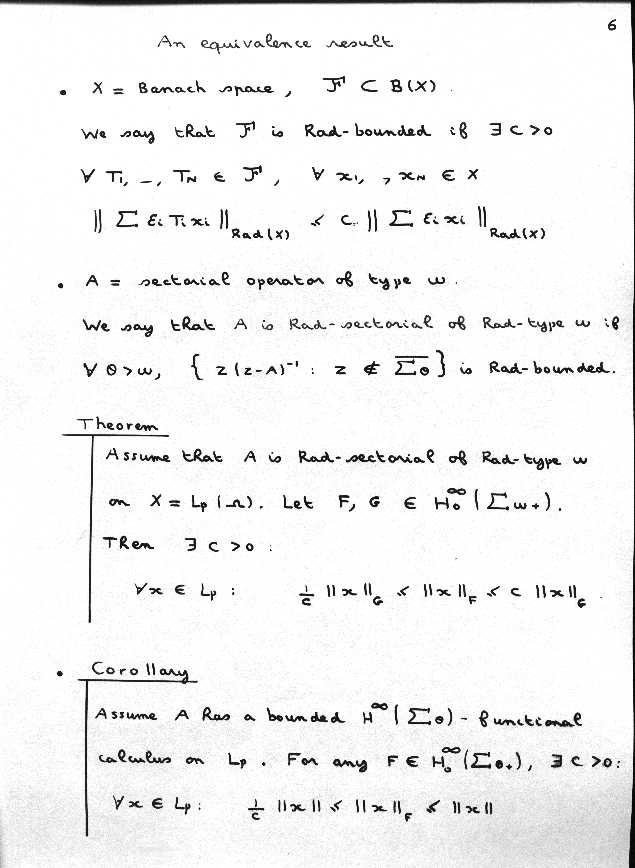 6
An equivalence result
• X = Banach space, ℱ ⊂ B(X).
We say that ℱ is Rad-bounded if ∃ C > 0
∀ T₁, –, T_N ∈ ℱ, ∀ x₁, , x_N ∈ X
‖ Σ εᵢ Tᵢ xᵢ ‖_Rad(X) ≤ C ‖ Σ εᵢ xᵢ ‖_Rad(X)
• A = sectorial operator of type ω.
We say that A is Rad-sectorial of Rad-type ω if
∀ θ > ω, { z(z-A)⁻¹ : z ∉ \overline{Σ_θ} } is Rad-bounded.
Theorem
Assume that A is Rad-sectorial of Rad-type ω
on X = Lp(Ω). Let F, G ∈ H₀^∞(Σ_ω+).
Then ∃ C > 0 :
∀x ∈ Lp : 1/C ‖x‖_G ≤ ‖x‖_F ≤ C ‖x‖_G.
• Corollary
Assume A has a bounded H^∞(Σ_θ)-functional
calculus on Lp. For any F ∈ H₀^∞(Σ_θ+), ∃ C > 0:
∀x ∈ Lp : 1/C ‖x‖ ≤ ‖x‖_F ≤ ‖x‖